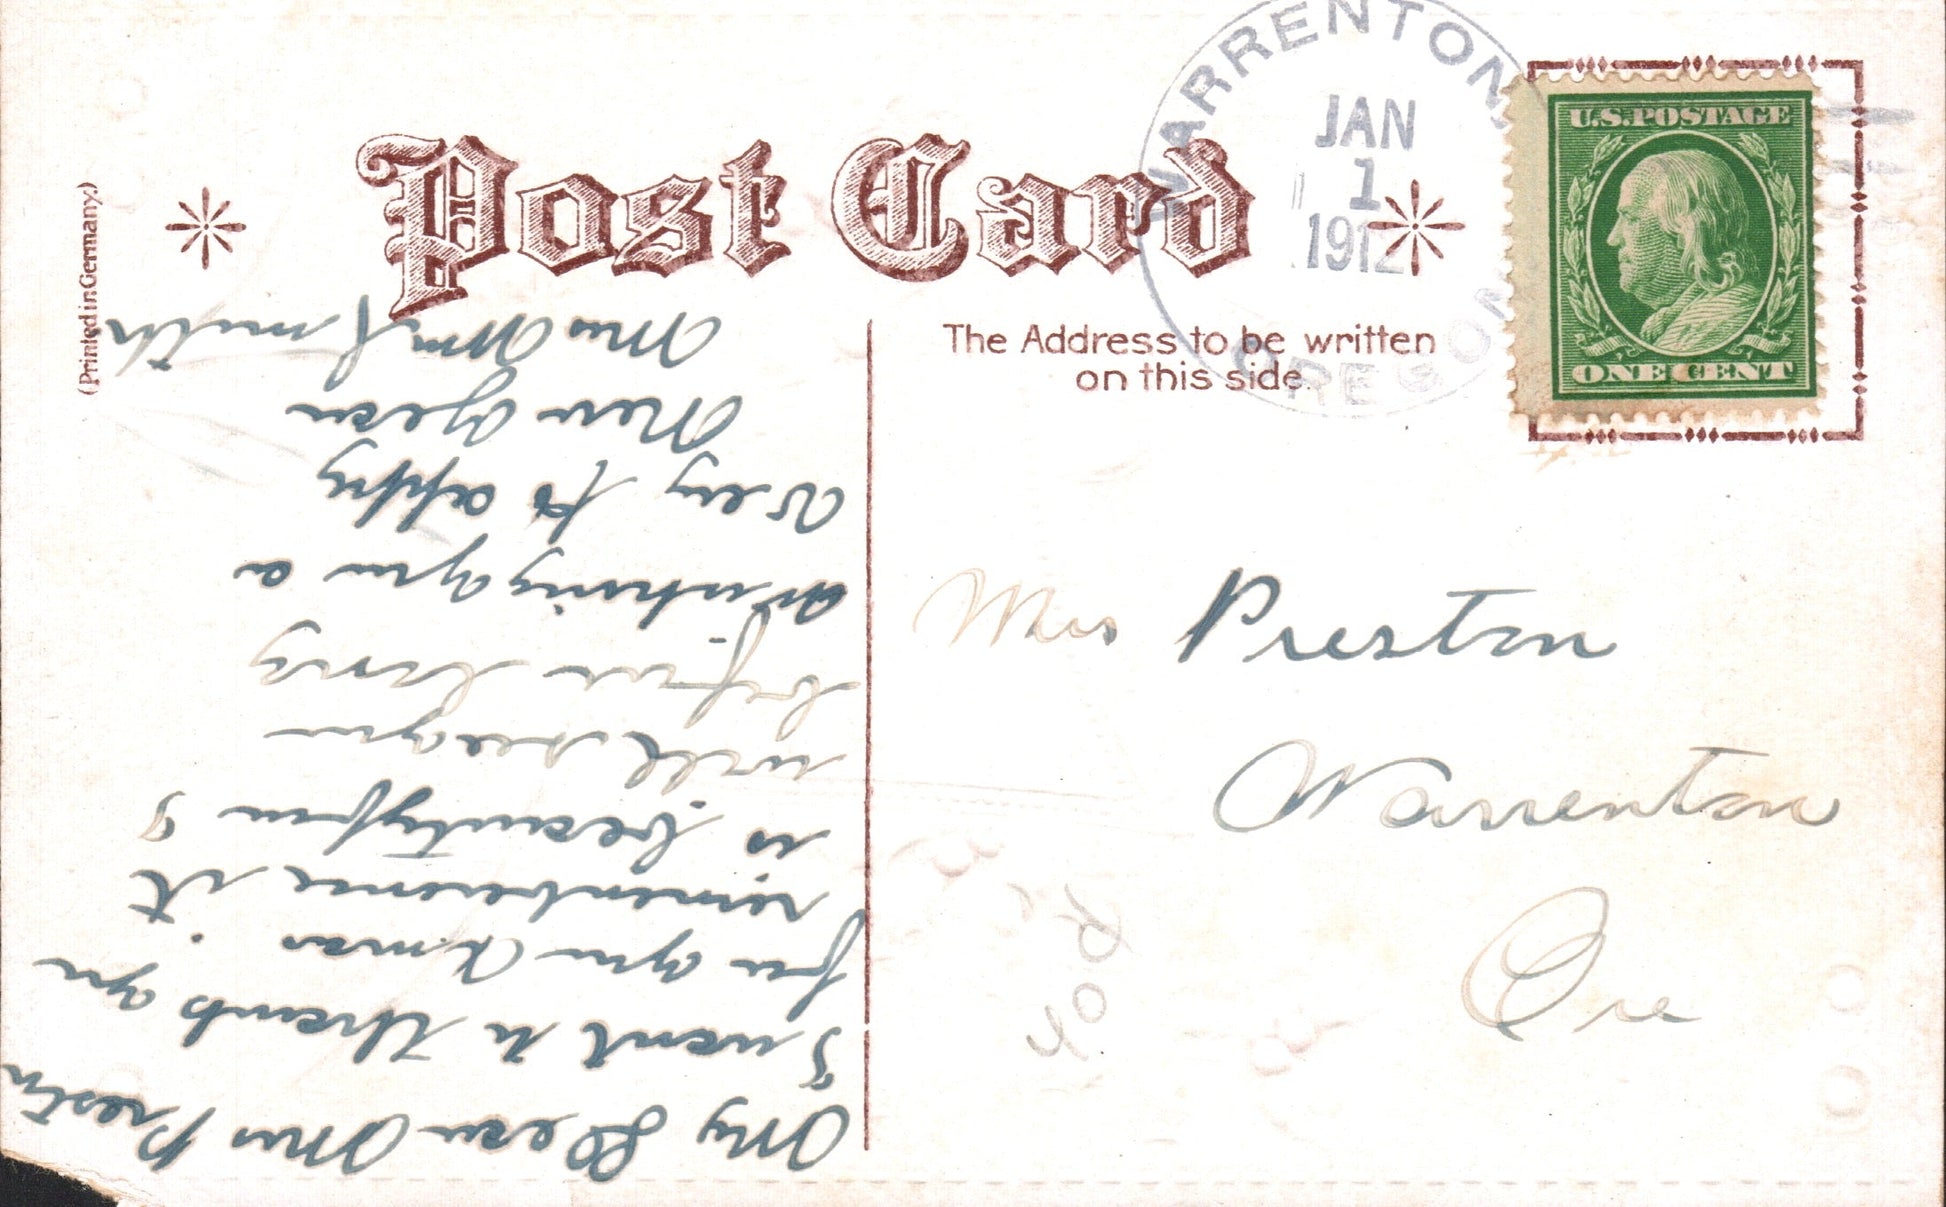 Post Card
(Printed in Germany.)
The Address to be written
on this side.
WARRENTON,
JAN
1
1912
OREGON
U.S. POSTAGE
ONE CENT
Mrs Preston
Warrenton
Ore
40d
My Dear Mrs Preston
I want to thank you
for your X.mas
rememberence it
is beautyfull I
will see you
before long
Wishing you a
Very happy
New Year
Mrs Wm Smith